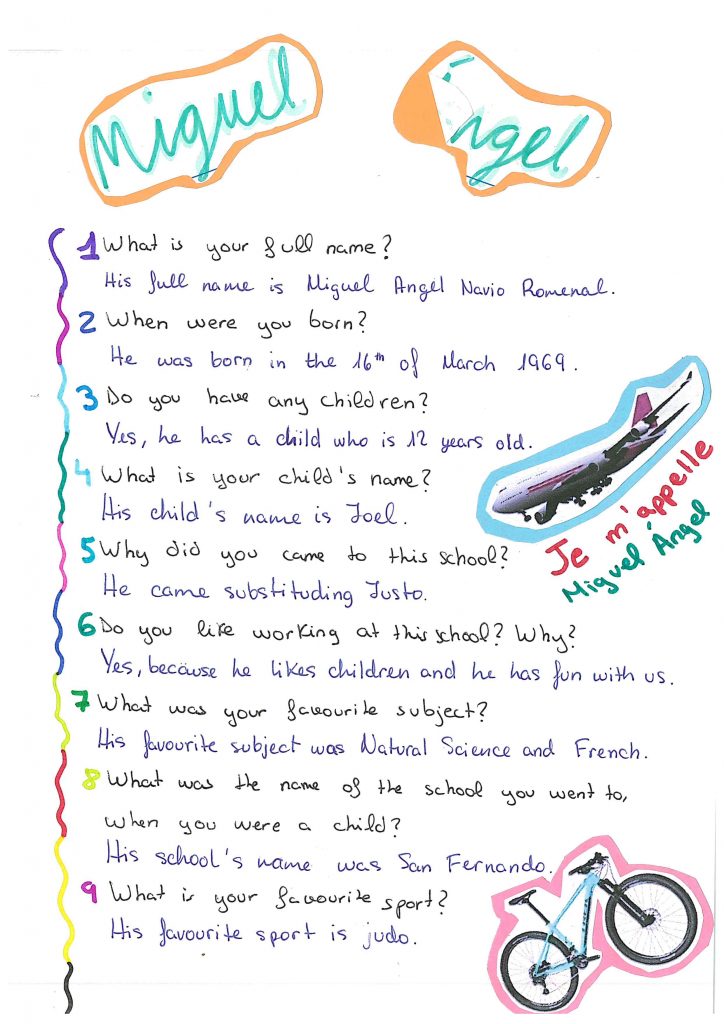 Miguel
Ángel
1 What is your full name?
His full name is Miguel Angel Navio Romenal.
2 When were you born?
He was born in the 16th of March 1969.
3 Do you have any children?
Yes, he has a child who is 12 years old.
4 What is your child's name?
His child's name is Joel.
5 Why did you came to this school?
He came substituding Justo.
6 Do you like working at this school? Why?
Yes, because he likes children and he has fun with us.
7 What was your favourite subject?
His favourite subject was Natural Science and French.
8 What was the name of the school you went to,
when you were a child?
His school's name was San Fernando.
9 What is your favourite sport?
His favourite sport is judo.
Je m'appelle
Miguel Ángel